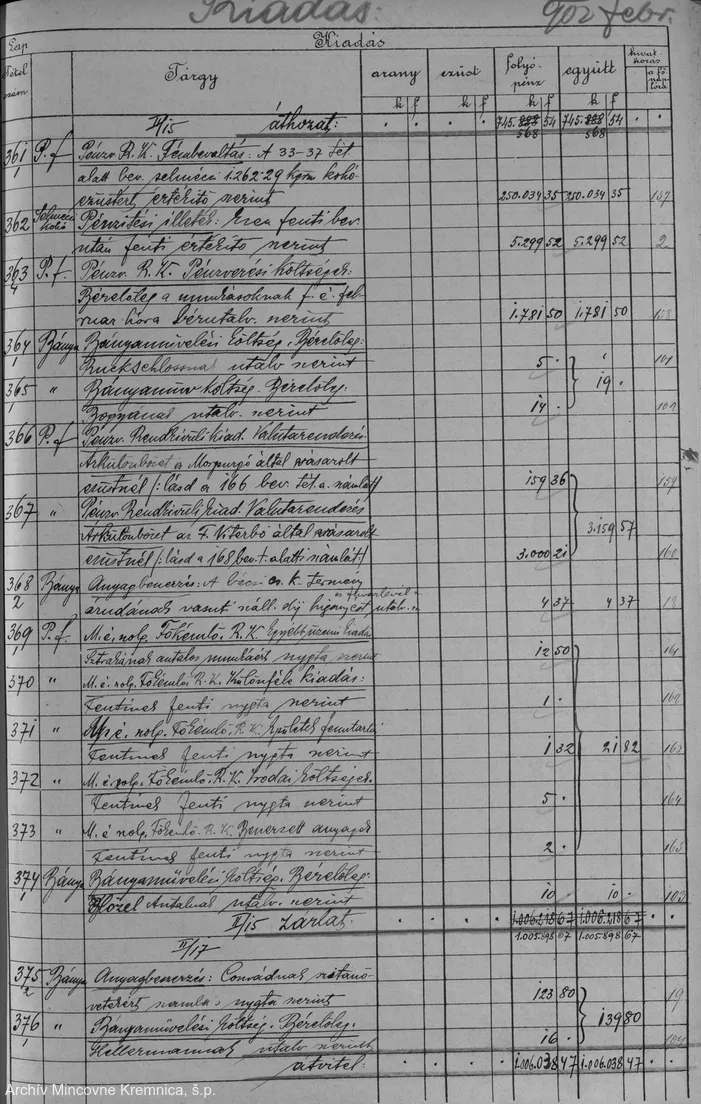 Kiadás: 902 febr.
Lap
Kiadás
Tétel szám
Tárgy
arany
ezüst
folyó-pénz
együtt
hivatkozás
a fő naplóra
k f k f k f k f
II/15 áthozat: 745.888 54 745.888 54
568 568
361 P.f Pénzv. R.K. Fémbeváltás: A 33-37 tét.
1 alatt bev. selmeczi 1.262.29 kgrm kohó
ezüstért értesitő szerint 250.034 35 250.034 35 157
362 Selmeczi kohó Pénzitési illeték: Ezen fenti bev.
után fenti értesitő szerint 5.299 52 5.299 52 2
363 P.f. Pénzv. R.K. Pénzverési költségek:
4 Bérelőleg a munkásoknak f. é. feb-
ruar hóra bérutalv. szerint 1.781 50 1.781 50 158
364 Bánya Bányamüvelési költség. Bérelőleg:
1 utalv. szerint 5 . 101
365 " Bányamüv költség. Bérelőleg: 19 .
1 utalv. szerint 14 . 102
366 P.f. Pénzv. Rendkivüli kiad. Valutarendezés.
Árkülönbözet a Morpurgó által vásárolt
ezüstnél /: lásd a 166 bev. tét. a. számlát/ 159 36 159
367 " Pénzv. Rendkivüli kiad. Valutarendezés
Árkülönbözet az F. Viterbó által vásárolt 3.159 57
ezüstnél /: lásd a 168 bev. t. alatti számlát/ 3.000 21 160
368 Bánya Anyagbeszerzés: A bécsi cs. k. termény
2 árudának vasuti száll. dij utalv. 4 37 4 37
369 P.f. M. é. szolg. Főkémlő. R.K. Egyébb üzemi kiad.
1 munkáért nygta szerint 12 50 161
370 " M. é. szolg. Főkémlő. R.K. Különféle kiadás:
Fentinek fenti nygta szerint 1 .
371 " M. é. szolg. Főkémlő. R.K. Épületek fenntartás
Fentinek fenti nygta szerint 1 32 21 82 163
372 " M. é. szolg. Főkémlő. R.K. Irodai költségek.
Fentinek fenti nygta szerint 5 . 164
373 " M. é. szolg. Főkémlő. R.K. Beszerzett anyagok
Fentinek fenti nygta szerint 2 . 165
374 Bánya Bányamüvelési költség. Bérelőleg:
1 Antalnak utalv. szerint 10 . 10 . 103
II/15 Zárlat . . . . 1.006.218 67 1.006.218 67 . .
II/17 1.005.898 67 1.005.898 67
375 Bánya Anyagbeszerzés: Conrádnak
2 számla s nygta szerint 123 80 19
376 " Bányamüvelési költség. Bérelőleg. 139 80
1 Hellermannak utalv. szerint 16 . 104
átvitel: . . . . 1.006.038 47 1.006.038 47 . .
Archív Mincovne Kremnica, š.p.